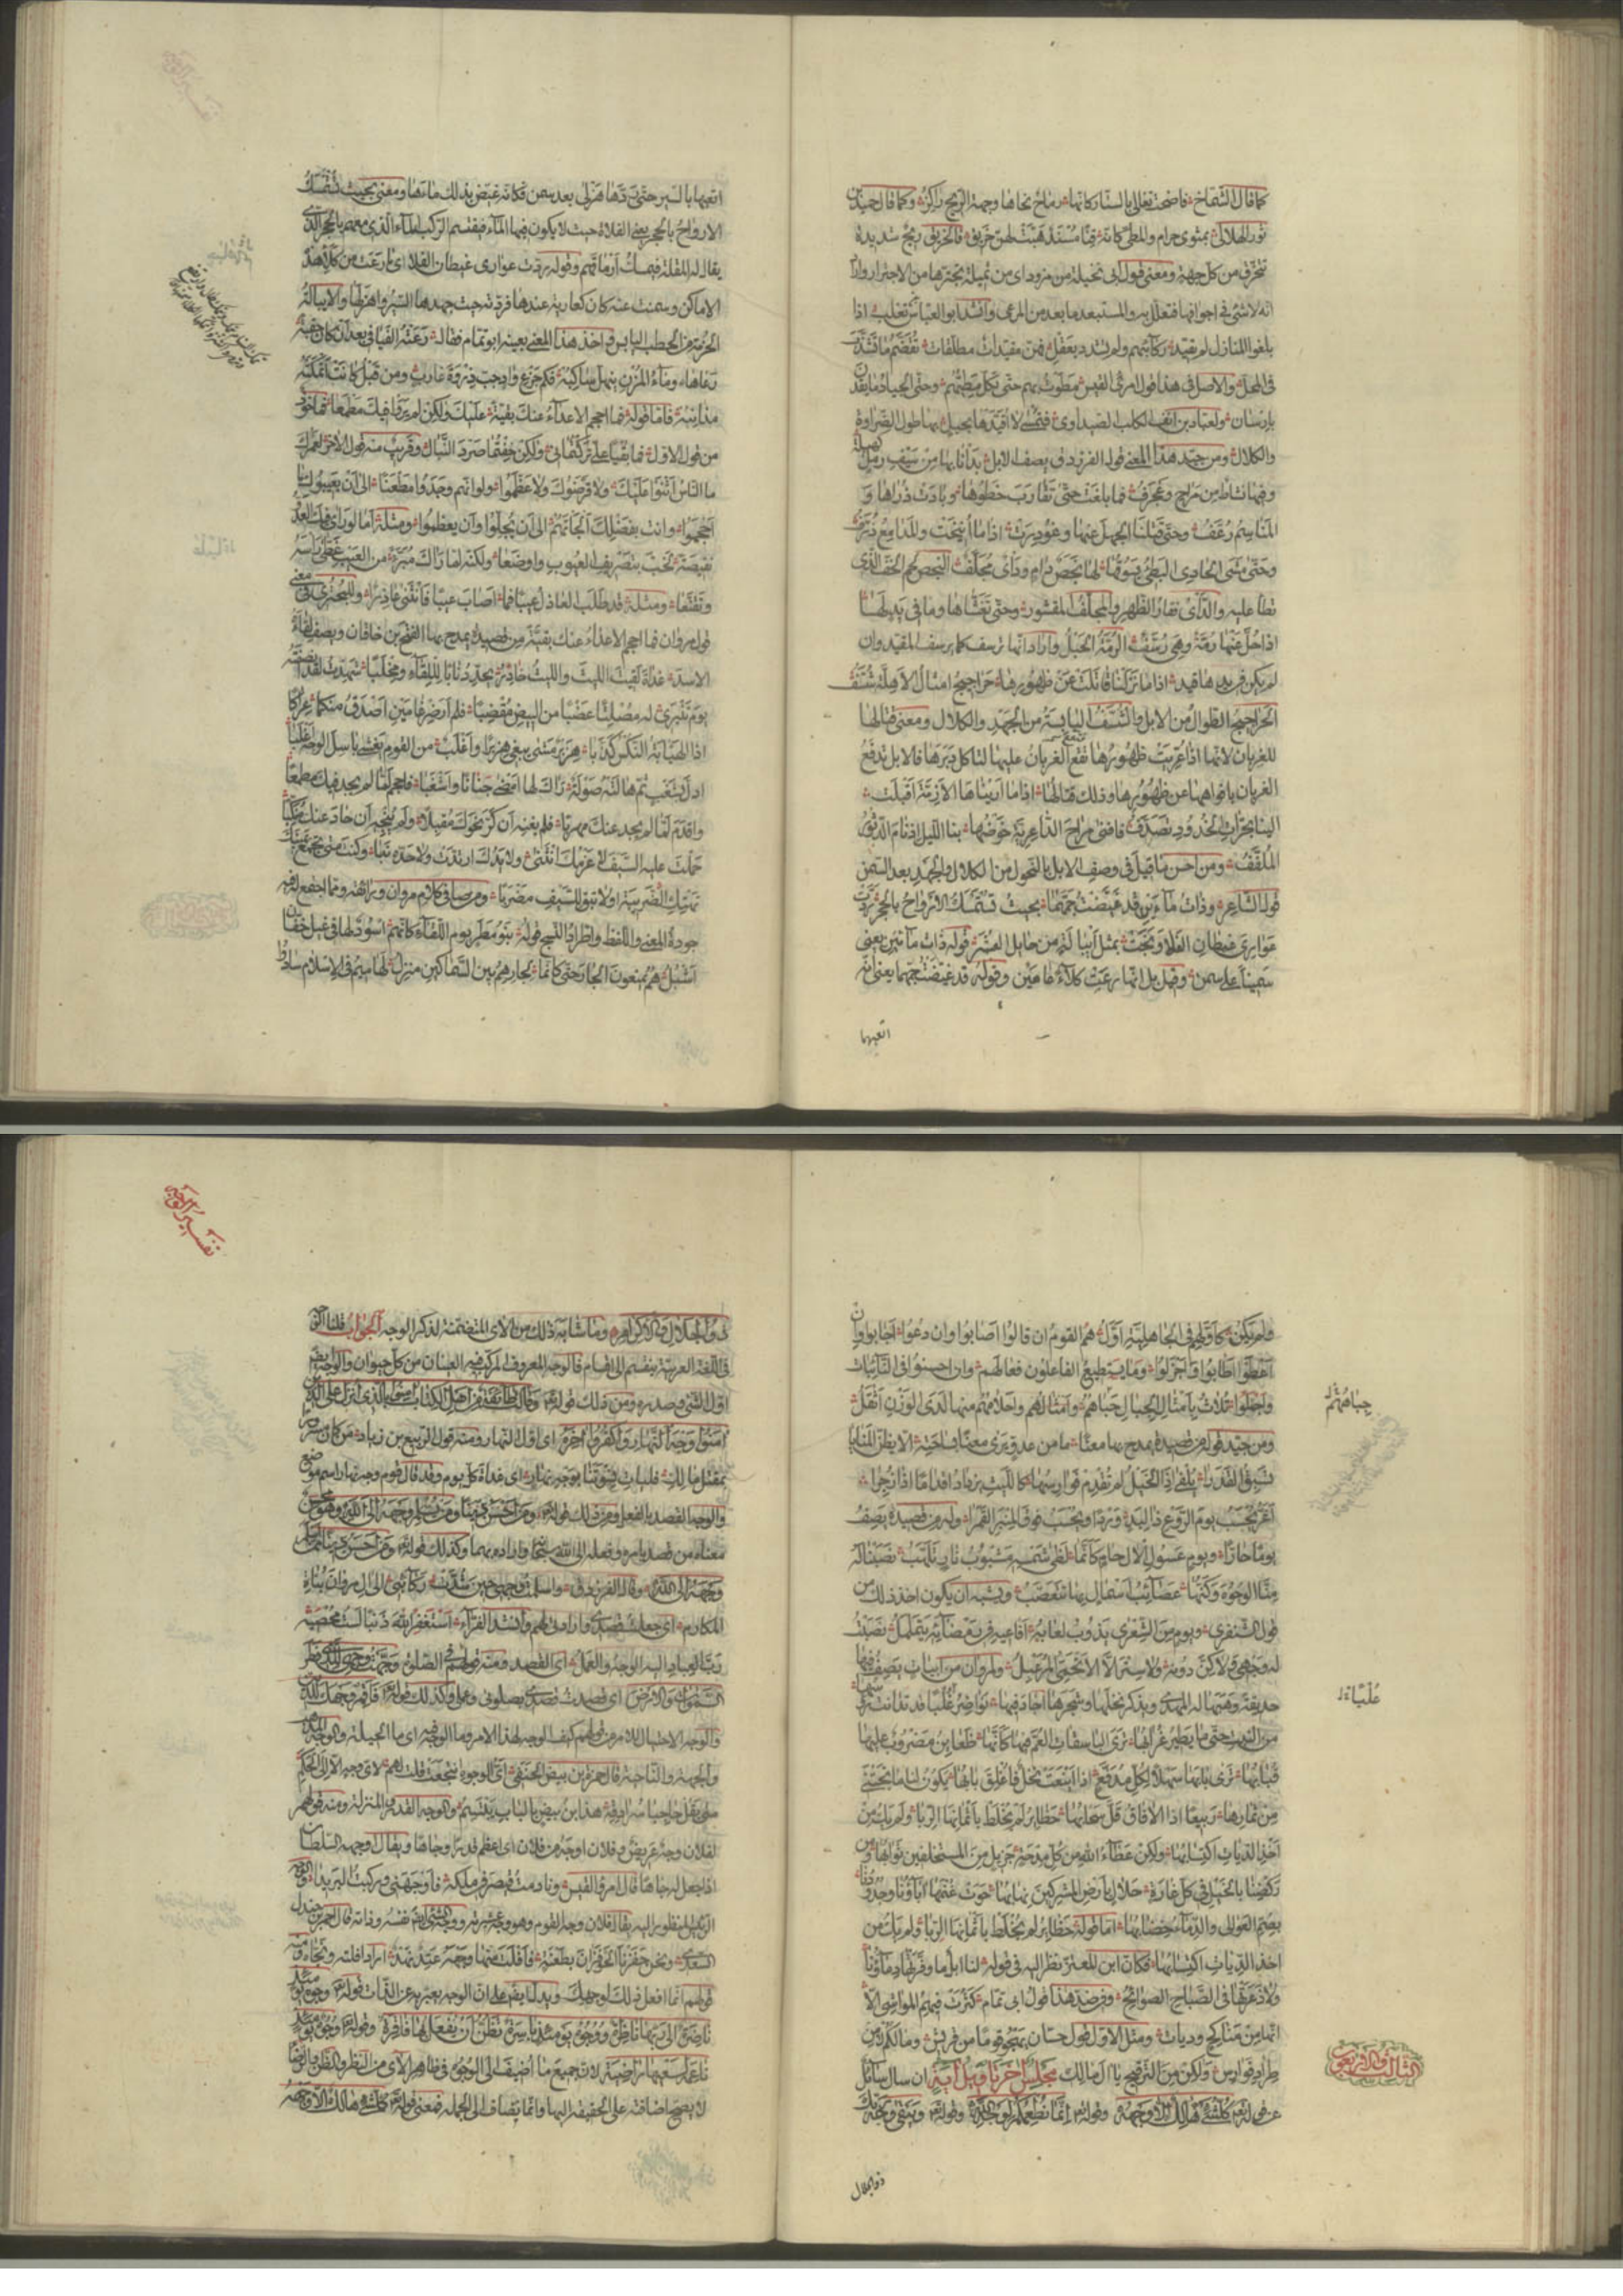 كما قال الشماخ فاضحت تغالى بالستار كانها رماح نحاها وجهة الريح راكز وكما قال حميد بن
ثور الهلالى بمثوى حرام والمطى كانه قنا مسند هبت لهن خريق فالخريق ريح شديدة
تنخرق من كل جهة ومعنى قول ابى نخيلة من مزود اى من ثميلة تجترها من الاجترار واراد
انه لا شئ فى اجوافها فتعلل به والمستبعد ما بعد من المرعى وانشد ابو العباس ثعلب اذا
بلغوا المنازل لم تقيد ركابهم ولم تشدد بعقل فهن مقيدات مطلقات تقضم ما تشذب
فى المحل والاصل فى هذا قول امرئ القيس مطوت بهم حتى تكل مطيهم وحتى الجياد ما يقدن
بارسان
والكلال ومن جيد هذا المعنى قول الفرزدق يصف الابل بدأنا بها من سيف رمل كهيلة
وفيها نشاط من مراح وعجرف فما بلغت حتى تقارب خطوها وبادت ذراها و
المناسم رعف وحتى قتلنا الجهل عنها وغودرت اذا ما انيخت والمدامع ذرف
وحتى مشى الحادى البطئ يسوقها لها بخص دام ودأى مجلف البخص لحم الخف الذى
تطأ عليه والدأى فقار الظهر والمجلف المقشور وحتى بعثناها وما فى يد لها
اذا حل عنها رمة وهى رسف الرمة الحبل واراد انها ترسف كما يرسف المقيد وان
لم يكن فى يديها قيد اذا ما نزلنا قاتلت عن ظهورها حراجيج امثال الاهلة شسف
الحراجيج الطوال من الابل والشسف اليابسة من الجهد والكلال ومعنى قتالها
للغربان لانها اذا عريت ظهورها تقع الغربان عليها لتاكل دبرها فالابل تدفع
الغربان بافواهها عن ظهورها وذلك قتالها اذا ما اريناها الازمة اقبلت
الينا بحرات الخدود تصدف فافنى مراح الداعرية خوضها بنا الليل اذ نام الدثور
الملفف ومن احسن ما قيل فى وصف الابل بالنحول من الكلال والجهد بعد السمن
قول الشاعر وذات ماءين قد غيضت جمتها بحيث تستمسك الارواح بالحجر ردت
عوارى غيطان الفلا ونجت بمثل ايبالة من حايل العشر قوله ذات مائين يعنى
سمينا على سمن وقيل بل انها رعت كلأ عامين وقوله قد غيضت جمتها يعنى انه
اتعبها
اتعبها بالسير حتى ردها هزلى بعد سمن فكانه غيض بذلك ماءها ومعنى بحيث تستمسك
الارواح بالحجر يعنى الفلاة حيث لا يكون فيها الماء فيقتسم الركب الماء الذى معهم بالحجر الذى
يقال له المقلة فيمسك ارماقهم وقوله ردت عوارى غيطان الفلا اى ما رعت من كلأ هذه
الاماكن وسمنت عنه كان كعارية عندها فردته حيث جهدها السير واهزلها والايبالة
الحزمة من الحطب اليابس وقد اخذ هذا المعنى بعينه ابو تمام فقال رعته الفيافى بعد ان كان حقبة
رعاها وماء المزن ينهل ساكبه فكم جزع واد جب ذروة غارب ومن قبل كانت اتمكته
مذانبه فاما قوله فما احجم الاعداء عنك بقية عليك ولكن لم يروا فيك مطمعا فماخوذ
من قول الاول فما بقيا على تركتمانى ولكن خفتما صرد النبال وقريب منه قول الاخر لعمرك
ما الناس اثنوا عليك ولا قرضوك ولا عظموا ولو انهم وجدوا مطعنا الى ان يعيبوك ما
احجموا وانت بفضلك الجأتهم الى ان يجلوا وان يعظموا ومثله اما لو رأى فيك العدو
نقيصة لخب بتصريف العيوب واوضعا ولكنه لما راك مبرء من العيب غطى راسه
وتقنعا ومثله قد طلب العاذل عيبا فما اصاب عيبا فانثنى عاذرا وللبحترى فى معنى
قول مروان فما احجم الاعداء عنك بقية من قصيدة يمدح بها الفتح بن خاقان ويصف لقاءه
الاسد غداة لقيت الليث والليث خادر يحدد نابا للقاء ومخلبا شهدت لقد انصفته
يوم تنبرى له مصلتا عضبا من البيض مقضبا فلم ار ضرغامين اصدق منكما عراكا
اذا الهيابة النكس كذبا هزبر مشى يبغى هزبرا واغلب من القوم يغشى باسل الوجه اغلبا
ادل بشغب ثم هالته صولة راك لها امضى جنانا واشغبا فاحجم لما لم يجد فيك مطمعا
واقدم لما لم يجد عنك مهربا فلم يغنه ان كر نحوك مقبلا ولم ينجه ان حاد عنك منكبا
حملت عليه السيف لا عزمك انثنى ولا يدك ارتدت ولا حده نبا وكنت متى تجمع يمينك
تهتك الضريبة او لا تبق للسيف مضربا ومما اجتمع له فيه
جودة المعنى واللفظ واطراد النسج قوله بنو مطر يوم اللقاء كانهم اسود لها فى غيل خفان
اشبل هم يمنعون الجار حتى كانما لجارهم بين السماكين منزل لها ميم فى الاسلام سادوا
ولم يكن كاولهم فى الجاهلية اول هم القوم ان قالوا اصابوا وان دعوا اجابوا وان
اعطوا اطابوا واجزلوا وما يستطيع الفاعلون فعالهم وان احسنوا فى النائبات
واجملوا ثلاث بامثال الجبال حباهم وامثالهم واحلامهم منها لدى الوزن اثقل
حباهم
ومن جيد قوله من قصيدة يمدح بها معنا ما من عدو يرى معنا بساحته الا يظن المنايا
تسبق القدرا يلقى اذا الخيل لم تقدم فوارسها كالليث يزداد اقداما اذا زجرا
اغر يحسب يوم الروع ذا لبد وردا ويحسب فوق المنبر القمرا وله من قصيدة يصف
يوما حارا ويوم عسول الال حام كانما لظى شمسه مشبوب نار تلهب نصبنا له
منا الوجوه وكنها عصائب اسمال بها نتعصب ويشبه ان يكون اخذ ذلك من
قول الشنفرى ويوم من الشعرى يذوب لعابه افاعيه فى رمضائه يتململ نصبت
له وجهى ولا كن دونه ولا ستر الا الاتحمى المرعبل ولمروان من ابيات يصف فيها
حديقة وهبها له المهدى ويذكر نخلها وشجرها اجاد فيها نواضر غلبا قد تدانت رؤسها
غلبا
من النبت حتى ما يطير غرابها ترى الباسقات العم فيها كانها ظعاين مضروب عليها
قبابها ترى بابها سهلا لكل مدفع اذا اينعت نخل فاغلق بابها يكون لنا ما نجتنى
من ثمارها ربيعا اذا الافاق قل سحابها حظاير لم يخلط باثمانها الربا ولم يك من
اخذ الديات اكتسابها ولكن عطاء الله من كل مدحة جزيل من المستخلفين ثوابها ومن
ركضنا بالخيل فى كل غارة حلال بارض المشركين نهابها حوت غنمها اباؤنا وجدودنا
بصم العوالى والدماء خضابها اما قوله حظاير لم يخلط باثمانها الربا ولم يك من
اخذ الديات اكتسابها فكان ابن المعتز نظر اليه فى قوله لنا ابل ما وفرتها دماؤنا
ولا ذعرتها فى الصباح الصوائح وفى ضد هذا قول ابى تمام كثرت فيهم المواشى الا
انها من مناكح وديات ومثل الاول قول حسان يهجو قوما من قريش وما لكم من
طراد فوارس ولكن من الترقيح يا ال مالك مجلس اخر تاويل اية ان سال سائل
الثالث والاربعون
عن قوله تعالى كل شئ هالك الا وجهه وقوله انما نطعمكم لوجه الله وقوله ويبقى وجه ربك
ذو الجلال
تفسير الوجه
ذو الجلال والاكرام وما شابه ذلك من الاى المتضمنة لذكر الوجه الجواب قلنا الوجه
فى اللغة العربية ينقسم الى اقسام فالوجه المعروف المركب فيه العينان من كل حيوان والوجه ايضا
اول الشئ وصدره ومن ذلك قوله وقالت طائفة من اهل الكتاب امنوا بالذى انزل على الذين
امنوا وجه النهار واكفروا اخره اى اول النهار ومنه قول الربيع بن زياد من كان مسرورا
بمقتل مالك فليات نسوتنا بوجه نهار اى غداة كل يوم وقد قال قوم وجه نهار اسم موضع
والوجه القصد بالفعل ومن ذلك قوله ومن يسلم وجهه الى الله وهو محسن
معناه من قصد بامره وفعله الى الله سبحانه واراده بهما وكذلك قوله ومن احسن دينا ممن اسلم
وجهه لله وقال الفرزدق واسلمت وجهى حين شدت ركائبى الى ال مروان بناة
المكارم اى جعلت قصدى وارادتى لهم وانشد الفراء استغفر الله ذنبا لست محصيه
رب العباد اليه الوجه والعمل اى القصد ومنه قولهم فى الصلوة وجهت وجهى للذى فطر
السموات والارض اى قصدت قصدى بصلوتى وعملى وكذلك قوله فاقم وجهك للدين
والوجه الاحتيال للامر من قولهم كيف الوجه لهذا الامر وما الوجه فيه اى ما الحيلة والوجه المذهب
والجهة والناحية قال حمزة بن بيض الحنفى اى الوجوه انتجعت قلت لهم لاى وجه الا الى الحكم
متى يقل حاجبا سرادقه هذا ابن بيض بالباب يبتسم والوجه القدر والمنزلة ومنه قولهم
لفلان وجه عريض وفلان اوجه من فلان اى اعظم قدرا وجاها ويقال اوجهه السلطان
اذا جعل له جاها قال امرؤ القيس ونادمت قيصر فى ملكه فاوجهنى وركبت البريدا والوجه
الرئيس المنظور اليه يقال فلان وجه القوم وهو وجه عشيرته ووجه الشئ نفسه وذاته قال احمد بن جندل
السعدى ونحن حفزنا الحوفزان بطعنة فافلت منها وجهه عتد نهد اراد افلته ونجاه ومنه
قولهم انما افعل ذلك لوجهك ويدل ايضا على ان الوجه يعبر به عن الذات قوله وجوه يومئذ
ناضرة الى ربها ناظرة ووجوه يومئذ باسرة تظن ان يفعل بها فاقرة وقوله وجوه يومئذ
ناعمة لسعيها راضية لان جميع ما اضيف الى الوجوه فى ظاهر الاى من النظر والظن والرضا
لا يصح اضافته على الحقيقة اليها وانما يضاف الى الجملة فمعنى قوله كل شئ هالك الا وجهه